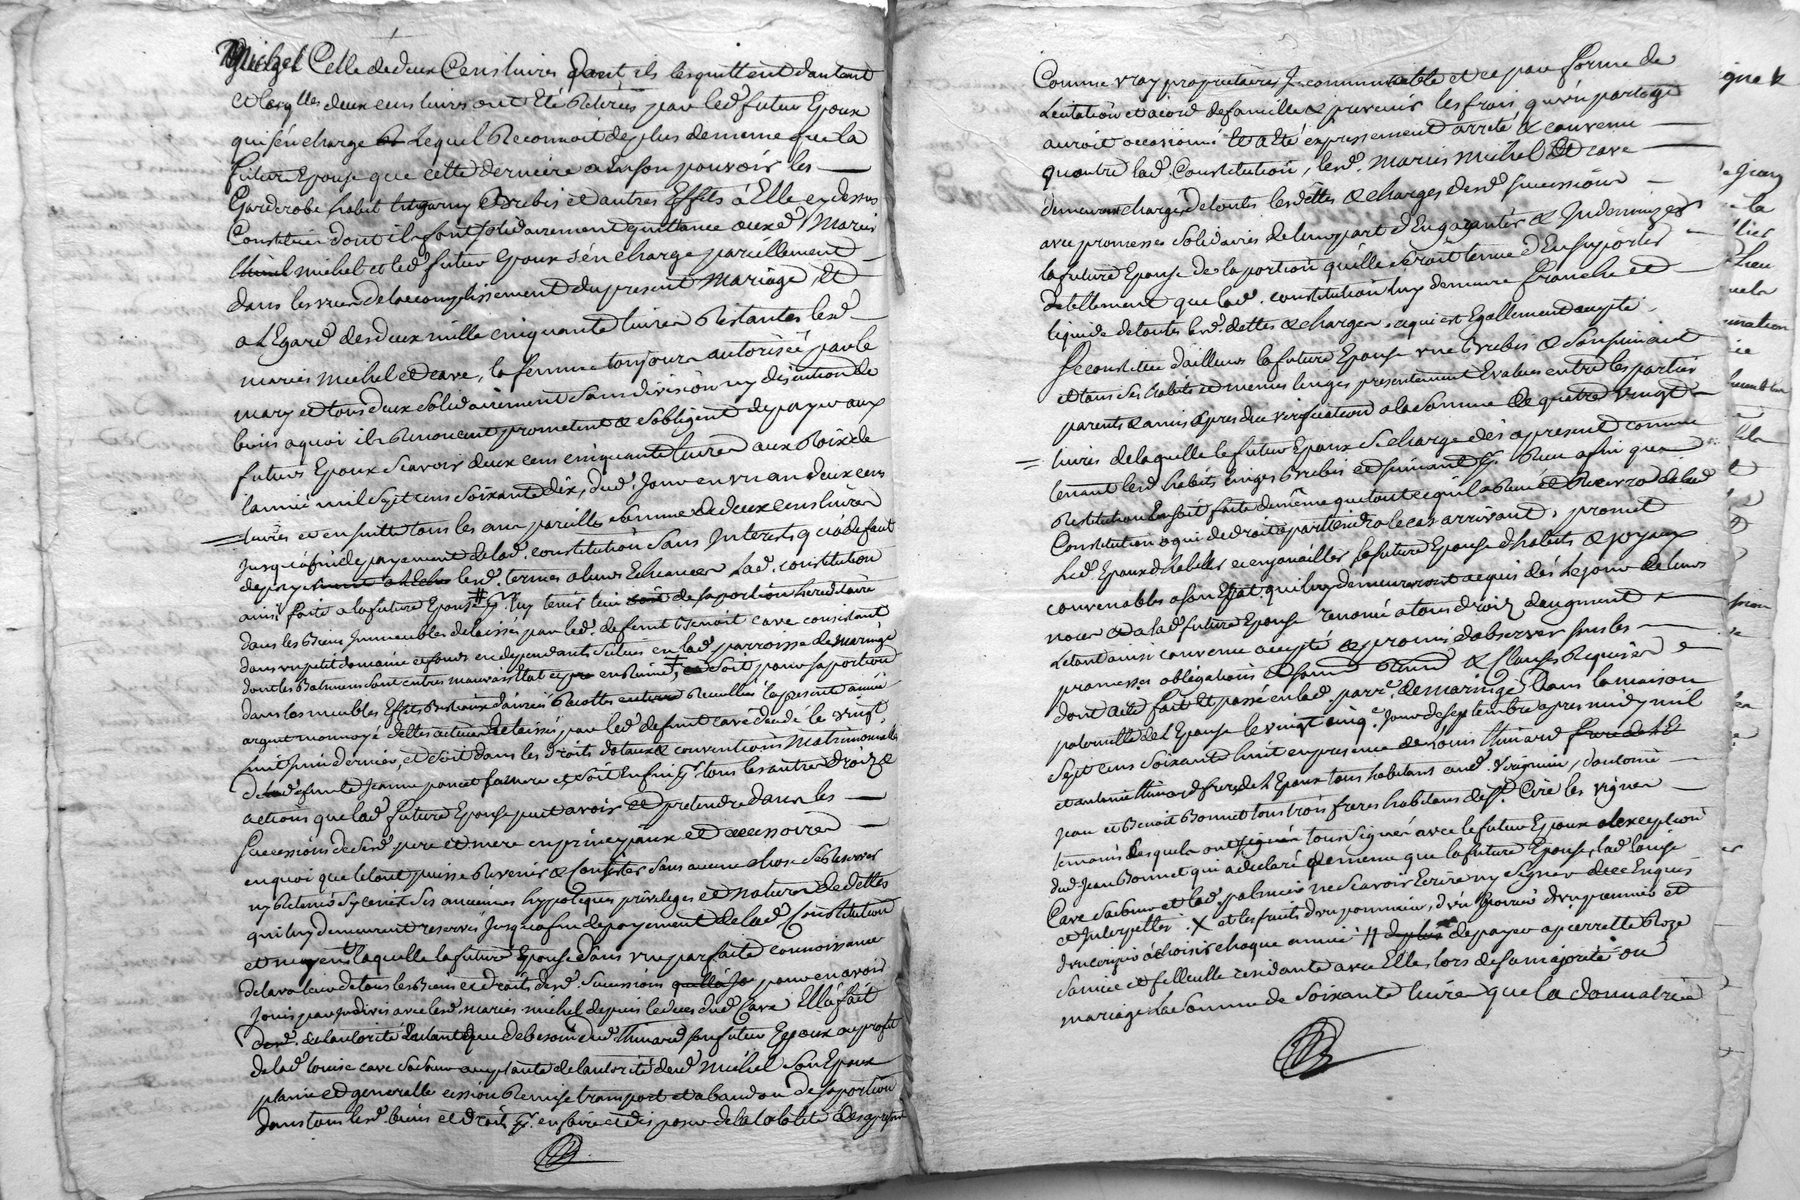 Michel Celle de deux Cens livres dont ils les quittent d'autant
et lesqlles deux cens livres ont Eté Retirées par led. futur Epoux
qui s'en charge Lequel Reconnoit de plus de meme que la
future Epouse que cette derniere a en son pouvoir les
Garderobe habit linge Brebis et autres Effets à Elle cy dessus
Constitués dont ils font solidairement quittance auxd. Mariés
Michel et led. futur Epoux s'en charge pareillement
dans les vues de lacomplissement du present Mariage Et
a l'Egard des deux mille cinquante livres Restantes lesd.
mariés Michel et Cave, la femme toujours autorisée par le
mary et tous deux solidairement sans division ny discution de
biens a quoi ils Renoncent promettent & s'obligent de payer aux
futurs Epoux Scavoir deux cens cinquante livres aux Roix de
lannée mil Sept cens Soixante dix, dud. Jour en un an deux cens
livres et ensuitte tous les ans pareille somme de deux cens livres
jusqu'à fin de payement de lad. constitution sans Interests qu'à defaut
de payement lesd. termes a leurs Echeances Lad. constitution
ainsi faite a la future Epouse luy tenir lieu de sa portion hereditaire
dans les Biens Immeubles delaissés par led. defunt Benoit Cave consistant
dans un petit domaine et fonds en dependants situés en lad. parroisse de maringe
dont les Batimens sont en tres mauvais Etat soit pour sa portion
dans les meubles Effets Bestiaux danrées Recoltes Recuillies la presente année
argent monnoyé dettes actives delaissés par led. defunt Cave decedé le vingt
huit Juin dernier, et soit dans les droits dotaux & conventions Matrimonialles
de lad. defunte Jeanne poncet sa mere et soit Enfin tous les autres droits &
actions que lad. future Epouse peut avoir et pretendre dans les
Successions de sesd. pere et mere en principaux et accessoires
en quoi que le tout puisse Revenir & Consister Sans aucune chose se Reserver
ny Retenir Sy ce n'est Ses anciennes hypoteques privileges et nature de dettes
qui luy demeurent reservés Jusqu'a fin de payement de lad. Constitution
et moyent laquelle la future Epouse dans une parfaite connoissance
de la valeur de tous les Biens et droits desd. Successions pour en avoir
joui par Indivis avec lesd. mariés Michel depuis le deces dud. Cave Elle fait
de lautorité Entant que de besoin dud. Thinard son futur Epoux au profit
de lad. Louise Cave sa sœur acceptante de lautorité dud. Michel son Epoux
pleine et generalle cession Remise transport et abandon de sa portion
dans tous lesd. biens et droits en faire et disposer de la totalité des apresent
Comme vray proprietaires Incommutable et ce par forme de
Licitation et acord de famille & prevenir les frais qu'un partage
auroit occasionné Et a Eté expressement arreté & convenu
qu'outre lad. Constitution, lesd. Mariés Michel Et Cave
demeurent chargés de toutes les dettes & charges desd. successions
avec promesses Solidaires de leur part d'En garantir & Indemniser
la future Epouse de la portion qu'elle seroit tenue d'En suporter
detellement que lad. constitution luy demeure franche et
liquide de toutes lesd. dettes & charges, ce qui est Egallement accepté
Se constitue d'ailleurs la future Epouse une Brebis & Son suivant
et tous ses habits et memes linges presentement Evalués entre les parties
parents & amis apres due verification a la Somme de quatre vingt
livres de laquelle le futur Epoux se charge dès a present comme
tenant lesd. habits linges Brebis et suivant Reçu afin que
Restitution En soit faite de même que tout ce qu'il a Reçu et Recevra de lad.
Constitution a qui de droit apartiendra le cas arrivant, promet
Led. Epoux d'habiller et enjoailler la future Epouse d'habits & joyaux
convenables a son Etat qui luy demeureront acquis dès le jour de leurs
noces et a lad. future Epouse renoncé a tous droits daugment
Le tout ainsi convenu accepté & promis d'observer sous les
promesses obligations Renon. & Clauses Requises
dont acte fait Et passé en lad. parre. de maringe Dans la maison
paternelle de l'Epouse le vingt cinqe. Jour de septembre apres midy mil
Sept cens Soixante huit en presence de Louis Thinard
et antoine Thinard freres de l'Epoux tous habitans aud. Virignieu, d'antoine
Jean et Benoit Bonnet tous trois freres habitans de St. Cire les Vignes
temoins Lesquels ont tous signés avec le futur Epoux a lexception
dud. Jean Bonnet qui a declaré de meme que la future Epouse, lad. Louise
Cave sa sœur et lad. palmier ne scavoir Ecrire ny signer de ce Enquis
et Interpellés. X et les fruits d'un pommier, d'un poirier d'un prunier et
d'un cerisier à choisir chaque année // de payer a pierrette Roze
sa niece et filleulle residante avec Elle, lors de sa majorité ou
mariage La Somme de Soixante livres que la donnatrice